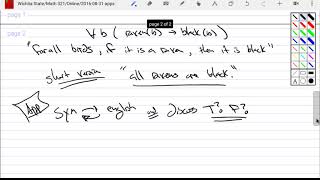 Wichita State/Math 321/Online/2016 08-31 apps
page 1
page 2
page 2 of 2
∀ b ( raven(b) → black(b) )
"for all birds, if it is a raven, then it is black"
short version "all ravens are black."
App
Sym ⇄ english and discuss T? F?